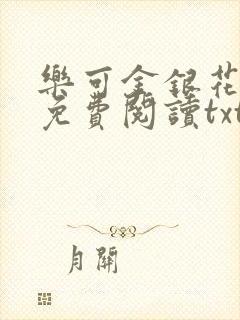 樂可金銀花
免費閱讀txt
月關